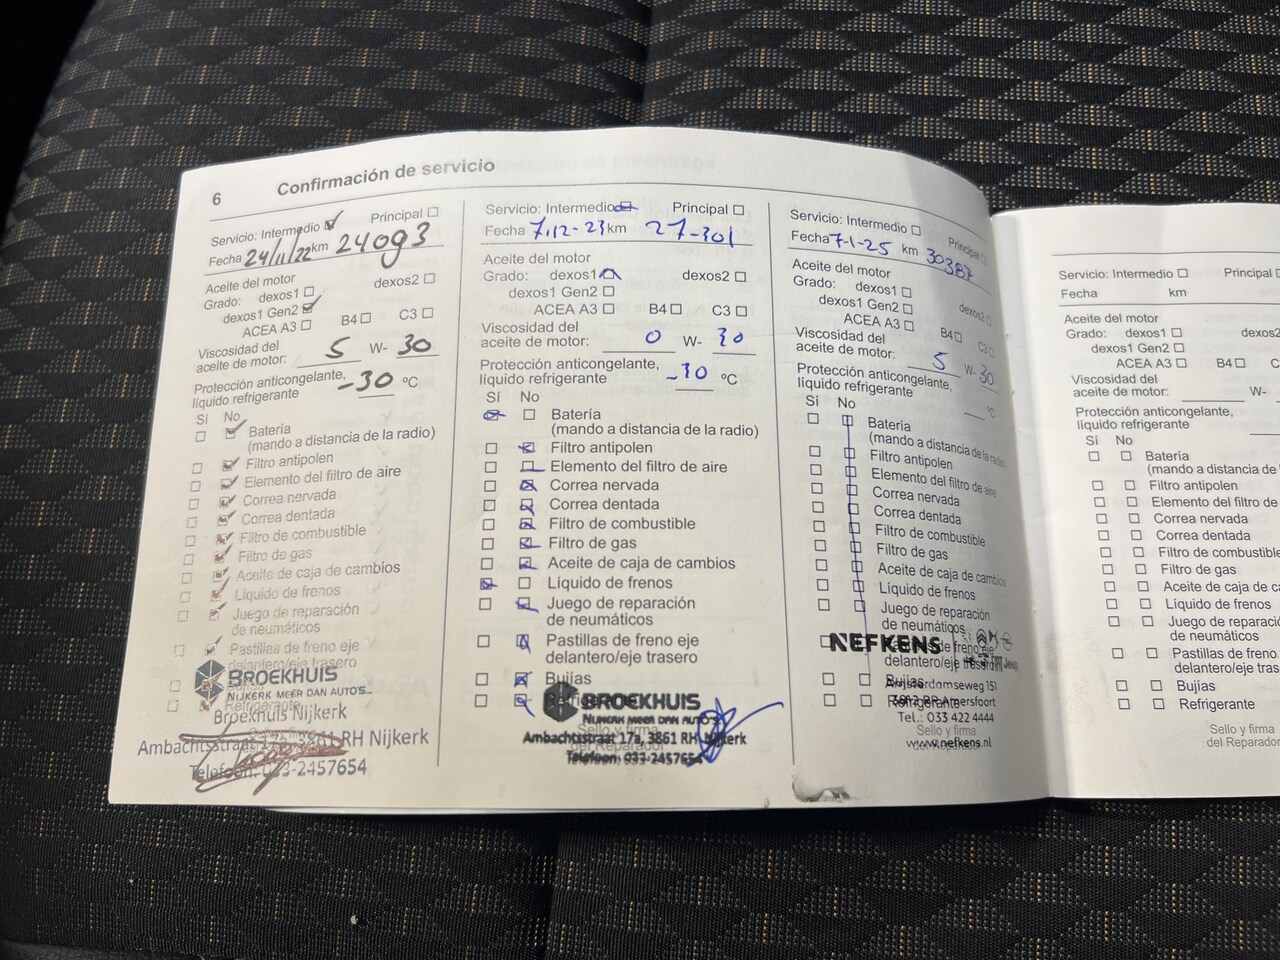 6
Confirmación de servicio
Servicio: Intermedio Principal
Fecha 24/11/22 km 24093
Aceite del motor
Grado: dexos1 dexos2
dexos1 Gen2
ACEA A3 B4 C3
Viscosidad del
aceite de motor: 5 W- 30
Protección anticongelante,
líquido refrigerante -30 °C
Sí No
Batería
(mando a distancia de la radio)
Filtro antipolen
Elemento del filtro de aire
Correa nervada
Correa dentada
Filtro de combustible
Filtro de gas
Aceite de caja de cambios
Líquido de frenos
Juego de reparación
de neumáticos
Pastillas de freno eje
delantero/eje trasero
Refrigerante
BROEKHUIS
NIJKERK MEER DAN AUTO'S...
Broekhuis Nijkerk
Ambachtsstraat 3861 RH Nijkerk
Telefoon: 033-2457654
Servicio: Intermedio Principal
Fecha 7.12-23 km 27-301
Aceite del motor
Grado: dexos1 dexos2
dexos1 Gen2
ACEA A3 B4 C3
Viscosidad del
aceite de motor: 0 W- 30
Protección anticongelante,
líquido refrigerante -30 °C
Sí No
Batería
(mando a distancia de la radio)
Filtro antipolen
Elemento del filtro de aire
Correa nervada
Correa dentada
Filtro de combustible
Filtro de gas
Aceite de caja de cambios
Líquido de frenos
Juego de reparación
de neumáticos
Pastillas de freno eje
delantero/eje trasero
Bujías
BROEKHUIS
NIJKERK MEER DAN AUTO'S
Sello y firma
del Reparador
Ambachtsstraat 17a, 3861 RH Nijkerk
Telefoon: 033-2457654
Servicio: Intermedio Principal
Fecha 7-1-25 km 30387
Aceite del motor
Grado: dexos1 dexos2
dexos1 Gen2
ACEA A3 B4 C3
Viscosidad del
aceite de motor: 5 W- 30
Protección anticongelante,
líquido refrigerante °C
Sí No
Batería
(mando a distancia de la radio)
Filtro antipolen
Elemento del filtro de aire
Correa nervada
Correa dentada
Filtro de combustible
Filtro de gas
Aceite de caja de cambios
Líquido de frenos
Juego de reparación
de neumáticos
NEFKENS
delantero/eje trasero
Jeep
Bujías
Amsterdamseweg 151
Refrigerante
Amersfoort
Tel.: 033 422 4444
Sello y firma
del Reparador
www.nefkens.nl
Servicio: Intermedio Principal
Fecha km
Aceite del motor
Grado: dexos1
dexos1 Gen2
ACEA A3 B4
Viscosidad del
aceite de motor: W-
Protección anticongelante,
líquido refrigerante
Sí No
Batería
(mando a distancia de
Filtro antipolen
Elemento del filtro de
Correa nervada
Correa dentada
Filtro de combustible
Filtro de gas
Aceite de caja de
Líquido de frenos
Juego de
de neumáticos
Pastillas de freno
delantero/eje
Bujías
Refrigerante
Sello y firma
del Reparador